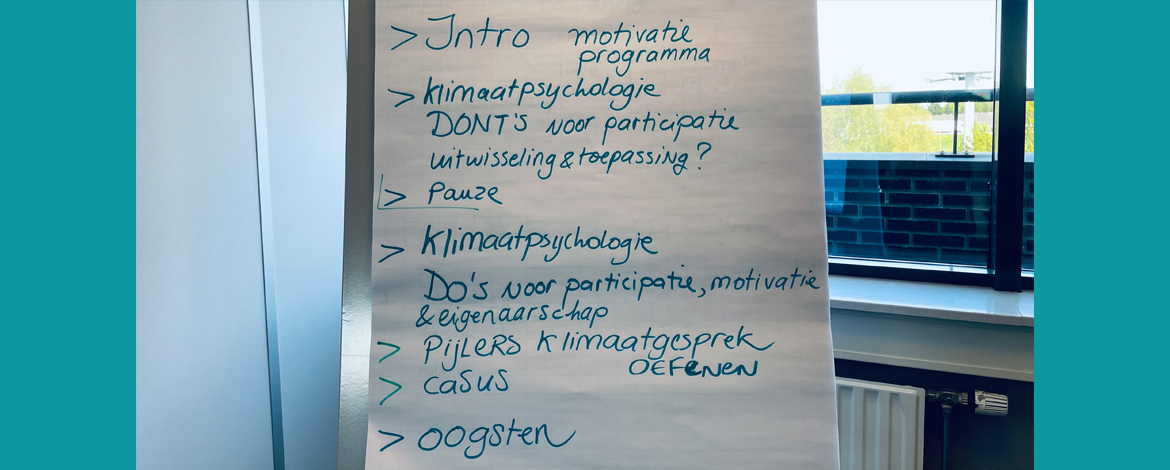 > Intro motivatie
programma
> klimaatpsychologie
DONT'S voor participatie
uitwisseling & toepassing?
> Pauze
> Klimaatpsychologie
DO's voor participatie, motivatie
& eigenaarschap
> PijLERS Klimaatgesprek
OEFENEN
> casus
> oogsten